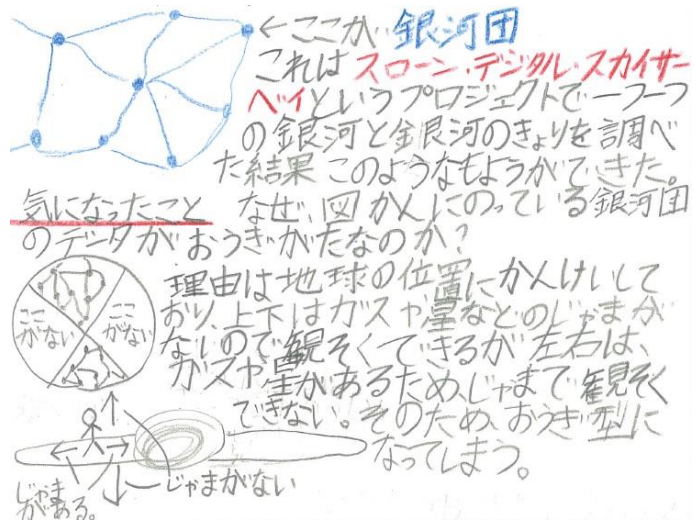 ←ここが銀河団
これはスローン・デジタル・スカイサー
ベイというプロジェクトで一つ一つ
の銀河と銀河のきょりを調べ
た結果このようなもようができた。
気になったこと なぜ、図かんにのっている銀河団
のデータがおうぎがたなのか?
理由は地球の位置にかんけいして
おり、上下はガスや星などのじゃまが
ないので観そくできるが左右は、
ガスや星があるため、じゃまで観そく
できない。そのため、おうぎ型に
なってしまう。
ここ
がない
ここ
がない
じゃま
がある。
じゃまがない